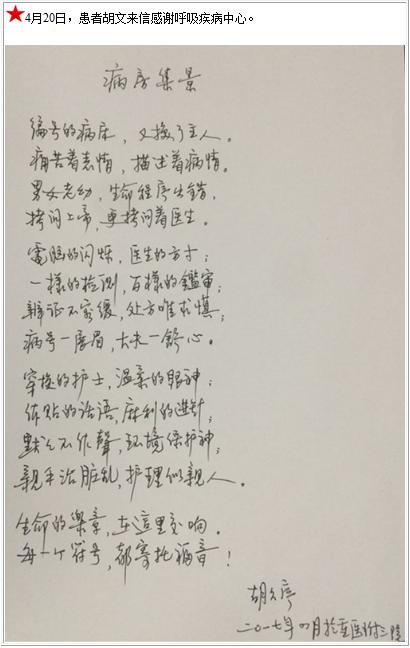 4月20日，患者胡文来信感谢呼吸疾病中心。
病房集景
编号的病床，又换了主人。
痛苦着表情，描述着病情。
男女老幼，生命程序出错，
拷问上帝，更拷问着医生。
電脑的闪烁，医生的方寸；
一樣的检测，百樣的鑑审；
辨证不容缓，处方唯求慎；
病号一展眉，大夫一舒心。
穿梭的护士，温柔的眼神；
体贴的话语，麻利的进针；
默々不作聲，环境保护神；
親手治脏乱，护理似親人。
生命的樂章，在這里交响。
每一个符号，都寄托福音！
胡
二〇一七年四月於重医附三院